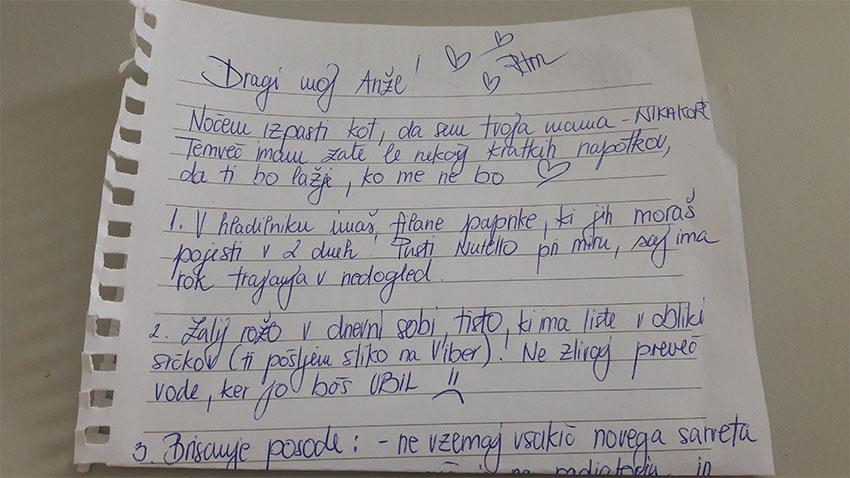 Dragi moj Anže!
Nočem izpasti kot, da sem tvoja mama - NIKAKOR
Temveč imam zate le nekaj kratkih napotkov,
da ti bo lažje, ko me ne bo
1. V hladilniku imaš filane paprike, ki jih moraš
pojesti v 2 dneh! Pusti Nutello pri miru, saj ima
rok trajanja v nedogled.
2. Zalij rožo v dnevni sobi, tisto, ki ma liste v obliki
srčkov (ti pošljem sliko na Viber)! Ne zlivaj preveč
vode, ker jo boš UBIL !!
3. Brisanje posode: - ne vzemaj vsakič novega sarveta
na radiatorju in